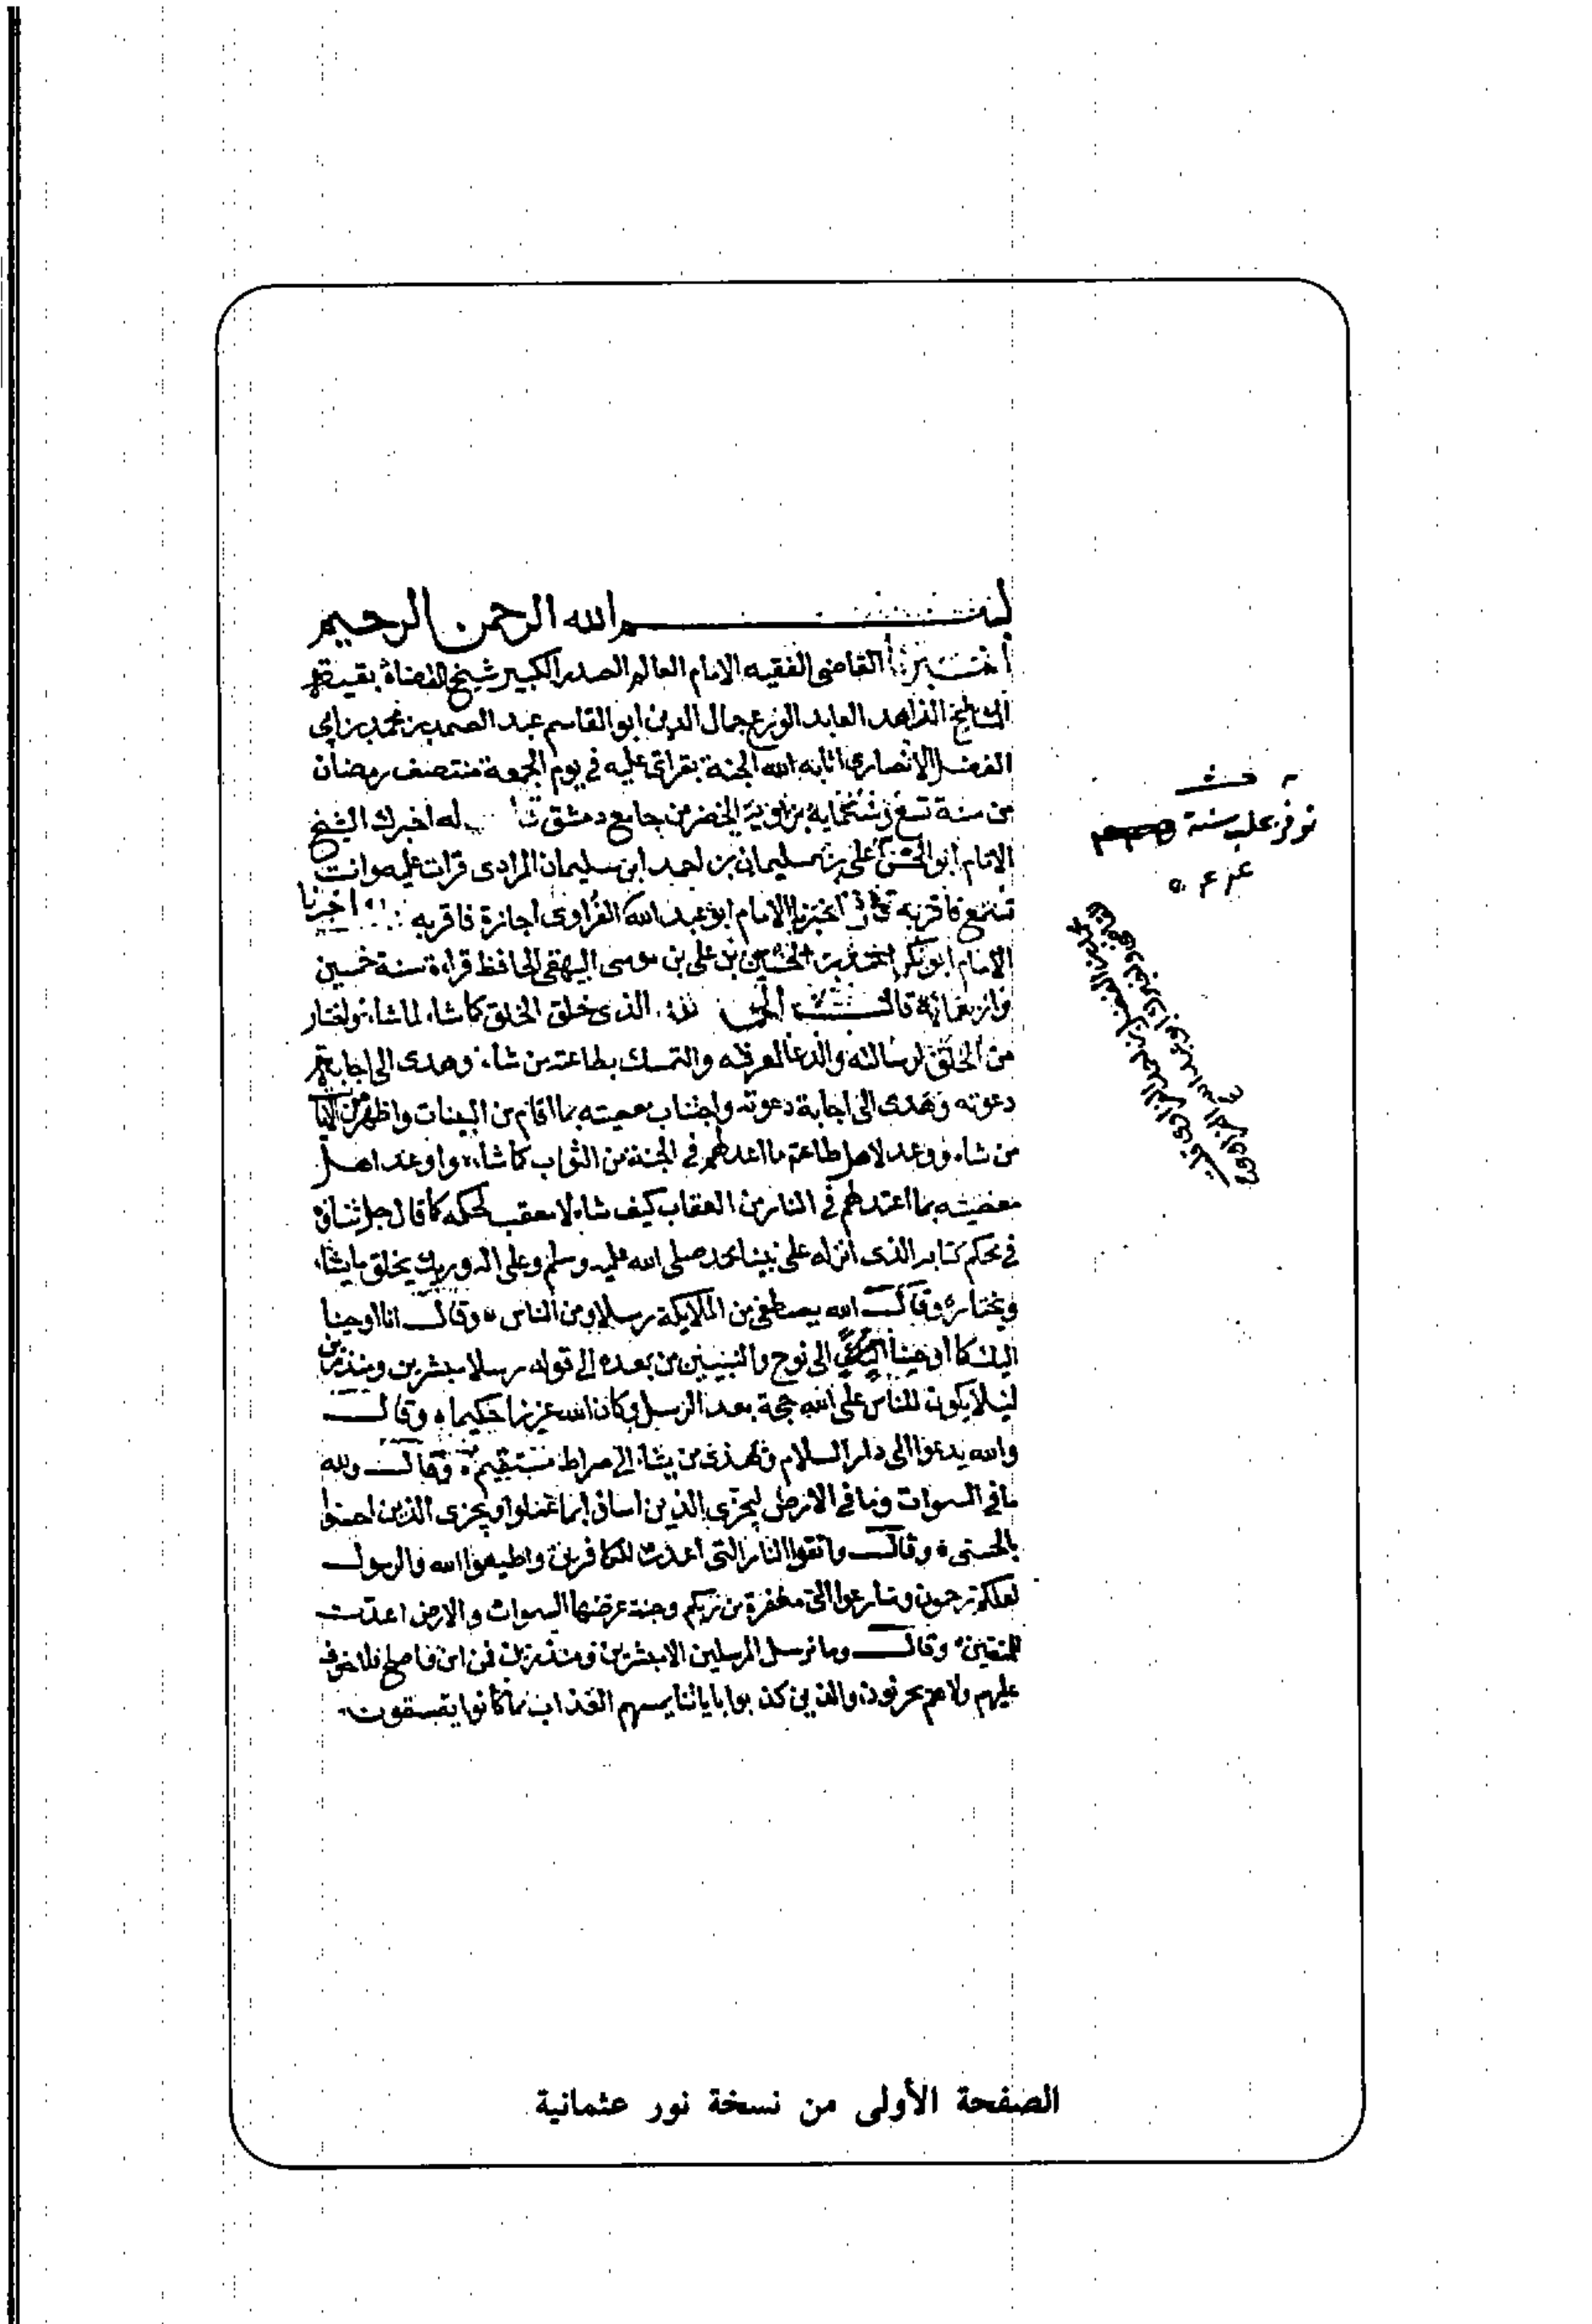 بسم الله الرحمن الرحيم
أخبرنا القاضى الفقيه الامام العالم الصدر الكبير شيخ القضاة بقية
المشايخ الزاهد العابد الورع جمال الدين ابو القاسم عبد الصمد بن محمد بن ابى
الفضل الانصارى اثابه الله الجنة بقراتى عليه فى يوم الجمعة منتصف رمضان
من سنة تسع وستماية بزاوية الخضر من جامع دمشق له اخبرك الشيخ
الامام ابو الحسن على بن سليمان بن احمد ابن سليمان المرادى قرات عليه وانت
تسمع فاقر به قال اخبرنا الامام ابو عبد الله الفراوى اجازة فاقر به اخبرنا
الامام ابو بكر احمد بن الحسين بن على بن موسى البيهقى الحافظ قراءة سنة خمسين
واربعماية قال الحمد لله الذى خلق الخلق كما شاء لما شاء واختار
من الخلق لرسالته والدعا لمعرفته والتمسك بطاعته من شاء وهدى الى اجابة
دعوته وهدى الى اجابة دعوته واجتناب معصيته بما اقام من البينات واظهر من
من شاء ووعد لاهل طاعته ما اعد لهم فى الجنة من الثواب كما شاء واوعد اهل
معصيته بما اعتد لهم فى النار من العقاب كيف شاء لا معقب لحكمه كما قال جل ثناؤه
فى محكم كتابه الذى انزله على نبينا محمد صلى الله عليه وسلم وعلى اله وربك يخلق ما يشاء
ويختار وقال الله يصطفى من الملايكة رسلا ومن الناس وقال انا اوحينا
اليك كما اوحينا الى نوح والنبيين من بعده الى قوله رسلا مبشرين ومنذرين
ليلا يكون للناس على الله حجة بعد الرسل وكان الله عزيزا حكيما وقال
والله يدعوا الى دار السلام ويهدى من يشاء الى صراط مستقيم وقال ولله
ما فى السموات وما فى الارض ليجزى الذين اساؤا بما عملوا ويجزى الذين احسنوا
بالحسنى وقال واتقوا النار التى اعدت للكافرين واطيعوا الله والرسول
لعلكم ترحمون وسارعوا الى مغفرة من ربكم وجنة عرضها السموات والارض اعدت
للمتقين وقال وما نرسل المرسلين الا مبشرين ومنذرين فمن امن واصلح فلا خوف
عليهم ولا هم يحزنون والذين كذبوا باياتنا يمسهم العذاب بما كانوا يفسقون
توفى بحلب سنة
الصفحة الأولى من نسخة نور عثمانية